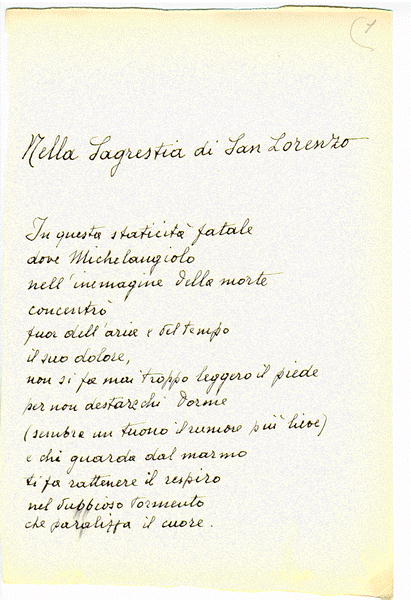 1
Nella Sagrestia di San Lorenzo
In questa staticità fatale
dove Michelangiolo
nell'immagine della morte
concentrò
fuor dell'aria e del tempo
il suo dolore,
non si fa mai troppo leggero il piede
per non destare chi dorme
(sembra un tuono il rumore più lieve)
e chi guarda dal marmo
ti fa rattenere il respiro
nel dubbioso tormento
che paralizza il cuore.